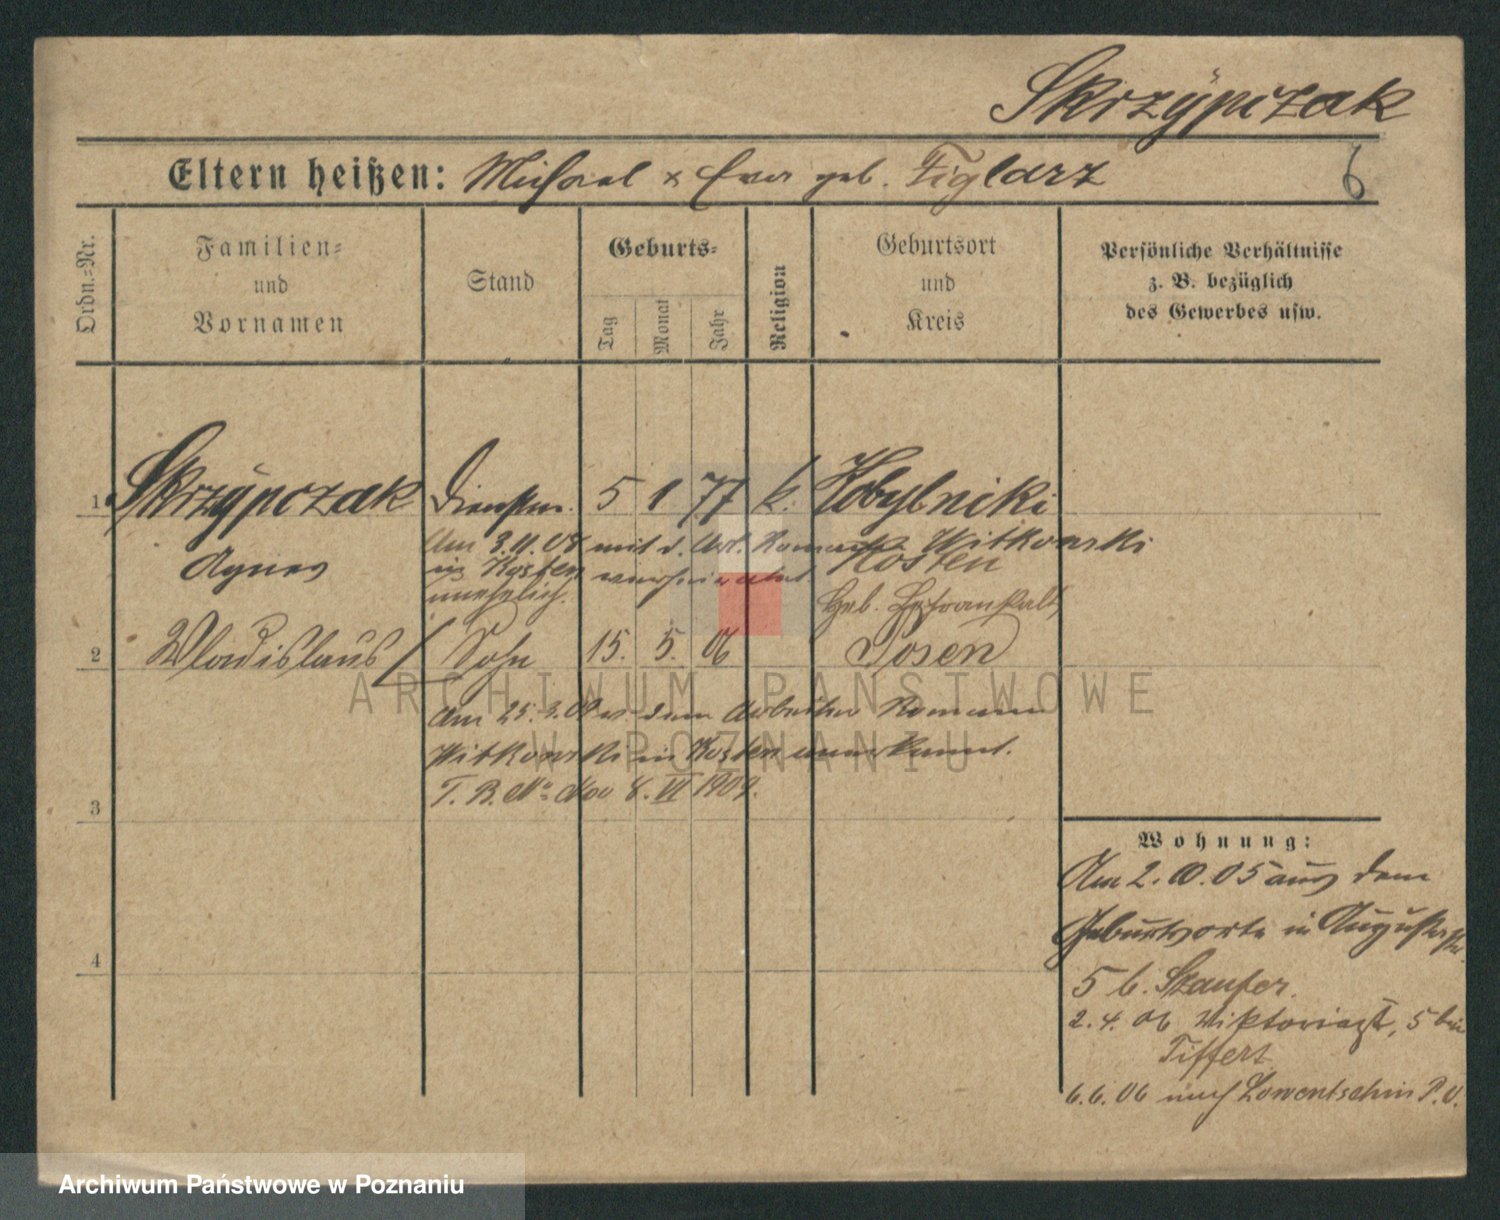 Skrzypczak
Eltern heißen: Michael & Eva geb. Figlarz
6
Ordn.-Nr.
Familien- und Vornamen
Stand
Geburts-
Tag
Monat
Jahr
Religion
Geburtsort und Kreis
Persönliche Verhältnisse
z. B. bezüglich
des Gewerbes usw.
1 Skrzypczak Dienstm. 5 1 77 k. Kobylniki
Agnes
Kosten
Am 3.11.08 mit d. Arb. Roman Witkowski
in Kosten verheiratet
unehelich.
Geb.
2 Wladislaus Sohn 15. 5. 06 Posen
Am 25.3.09 v. dem Arbeiter Roman
Witkowski in Kosten anerkannt.
T. B. No 8. VI 1909.
3
4
Wohnung:
Am 2.10.05 aus dem
Geburtsorte in Augustastr.
5 b. Staufer.
2.4.06 Viktoriastr. 5 bei
Tiffert
6.6.06 nach Lowentschin P.O.
ARCHIWUM PAŃSTWOWE
W POZNANIU
Archiwum Państwowe w Poznaniu